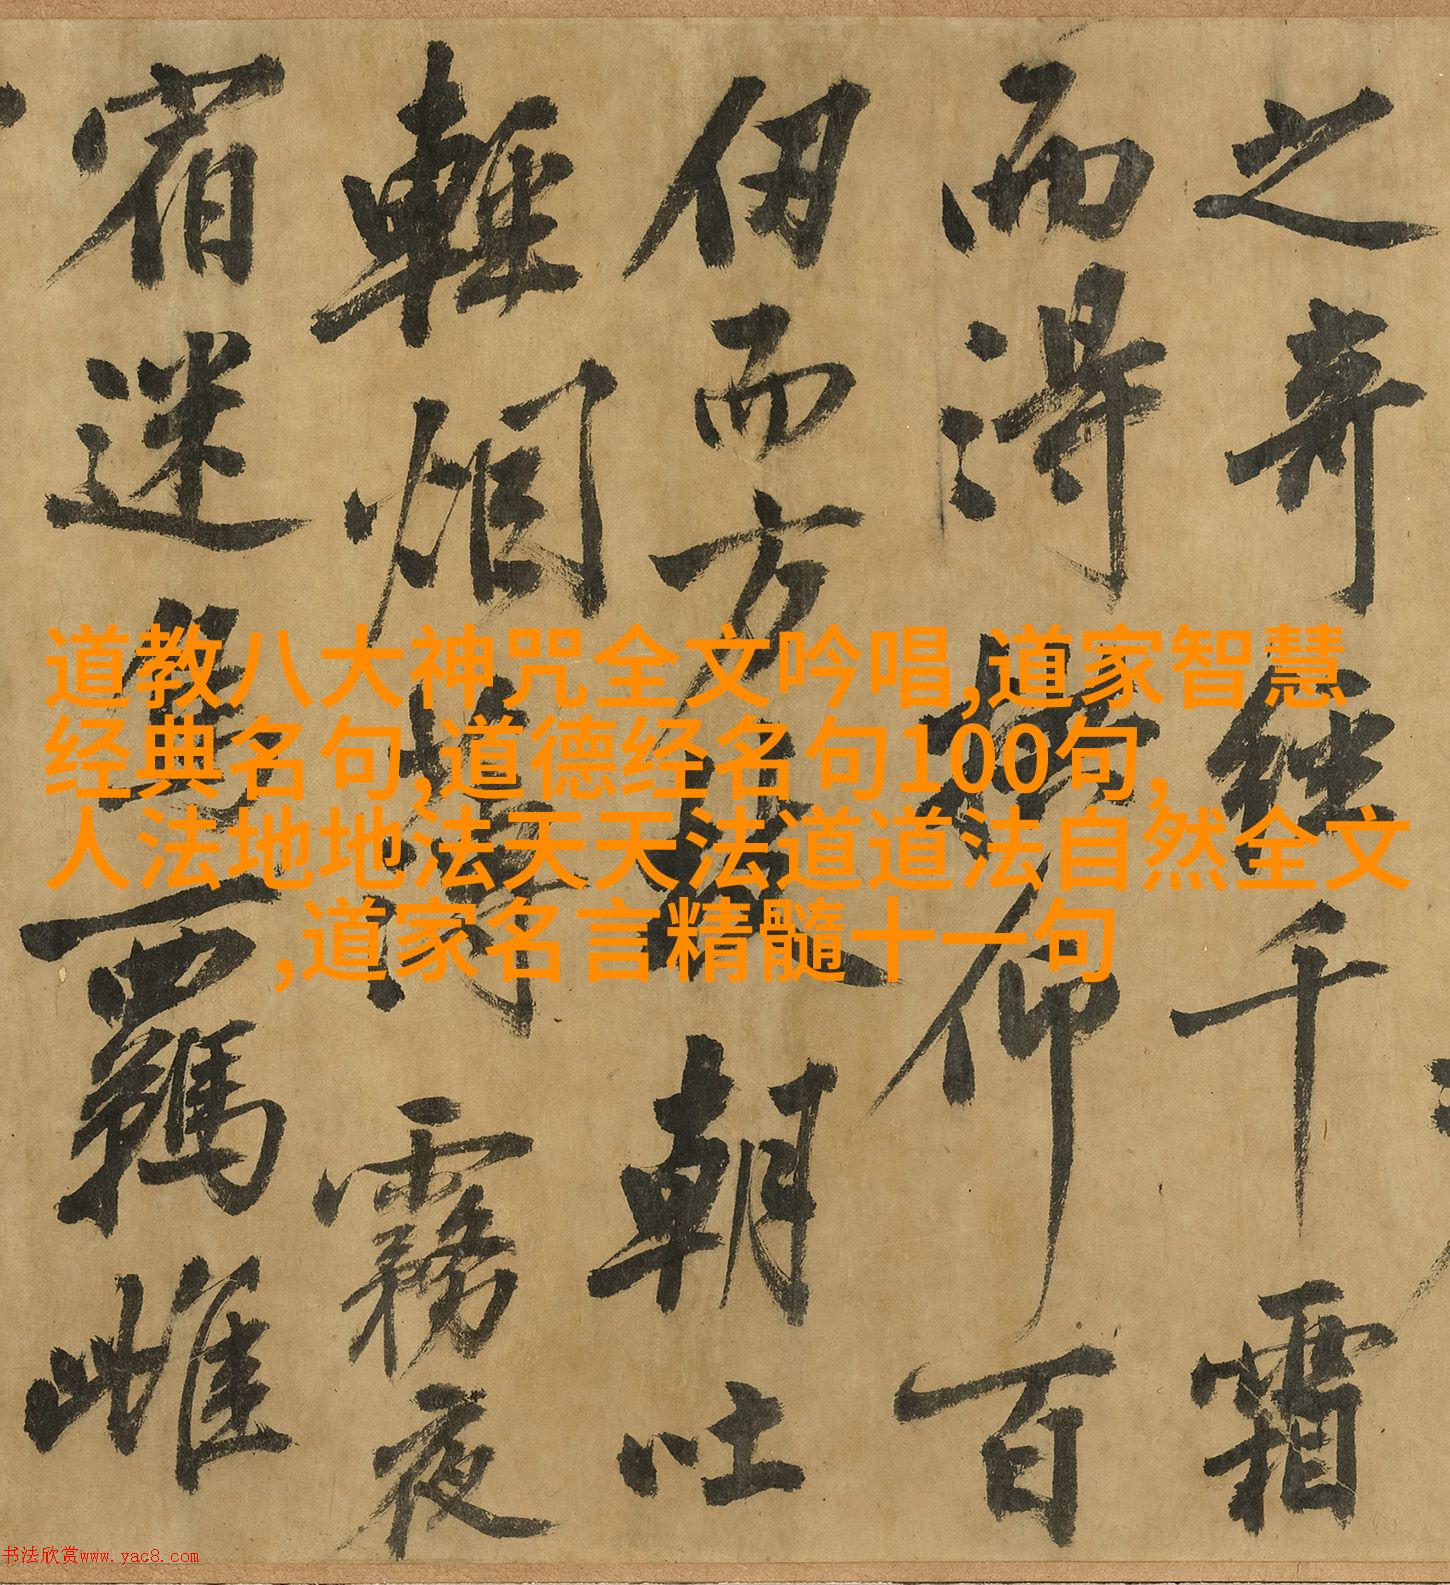 之奇絕千霜
而得仰百
仞而方朝吐
輕烟霧夜
宿迷鳥羈雌
道教八大神咒全文吟唱,道家智慧
经典名句,道德经名句100句,
人法地地法天天法道道法自然全文
,道家名言精髓十一句
书法欣赏www.yac8.com